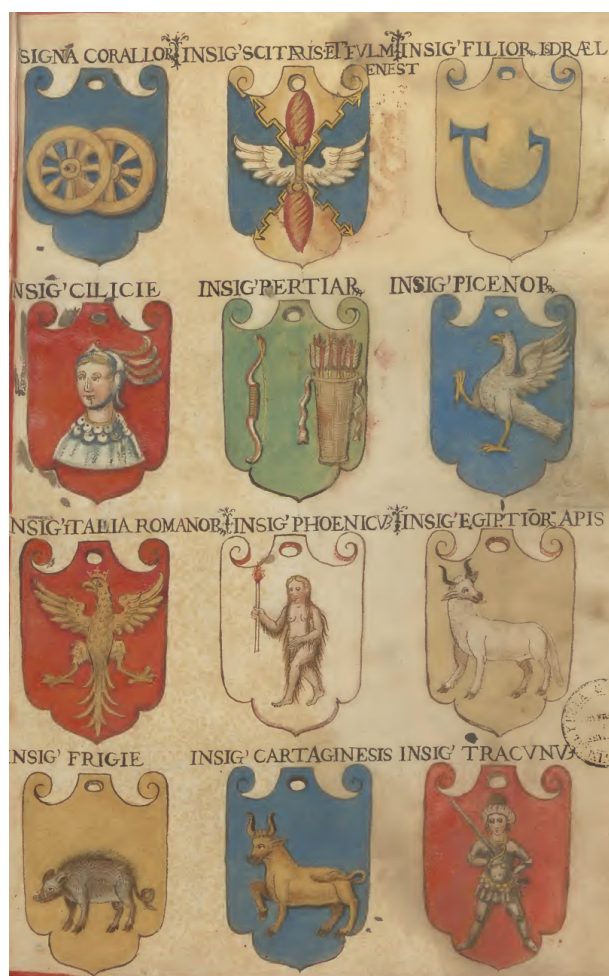 SIGNA CORALLOR INSIG'SCITRISETFVLMI INSIG'FILIOR ISDRAEL
ENEST
NSIG'CILICIE INSIG'PERTIAR INSIG'PICENOR
INSIG'ITALIA ROMANOR INSIG'PHOENICVB INSIG'EGIPTIOR APIS
INSIG'FRIGIE INSIG'CARTAGINESIS INSIG'TRACVNV